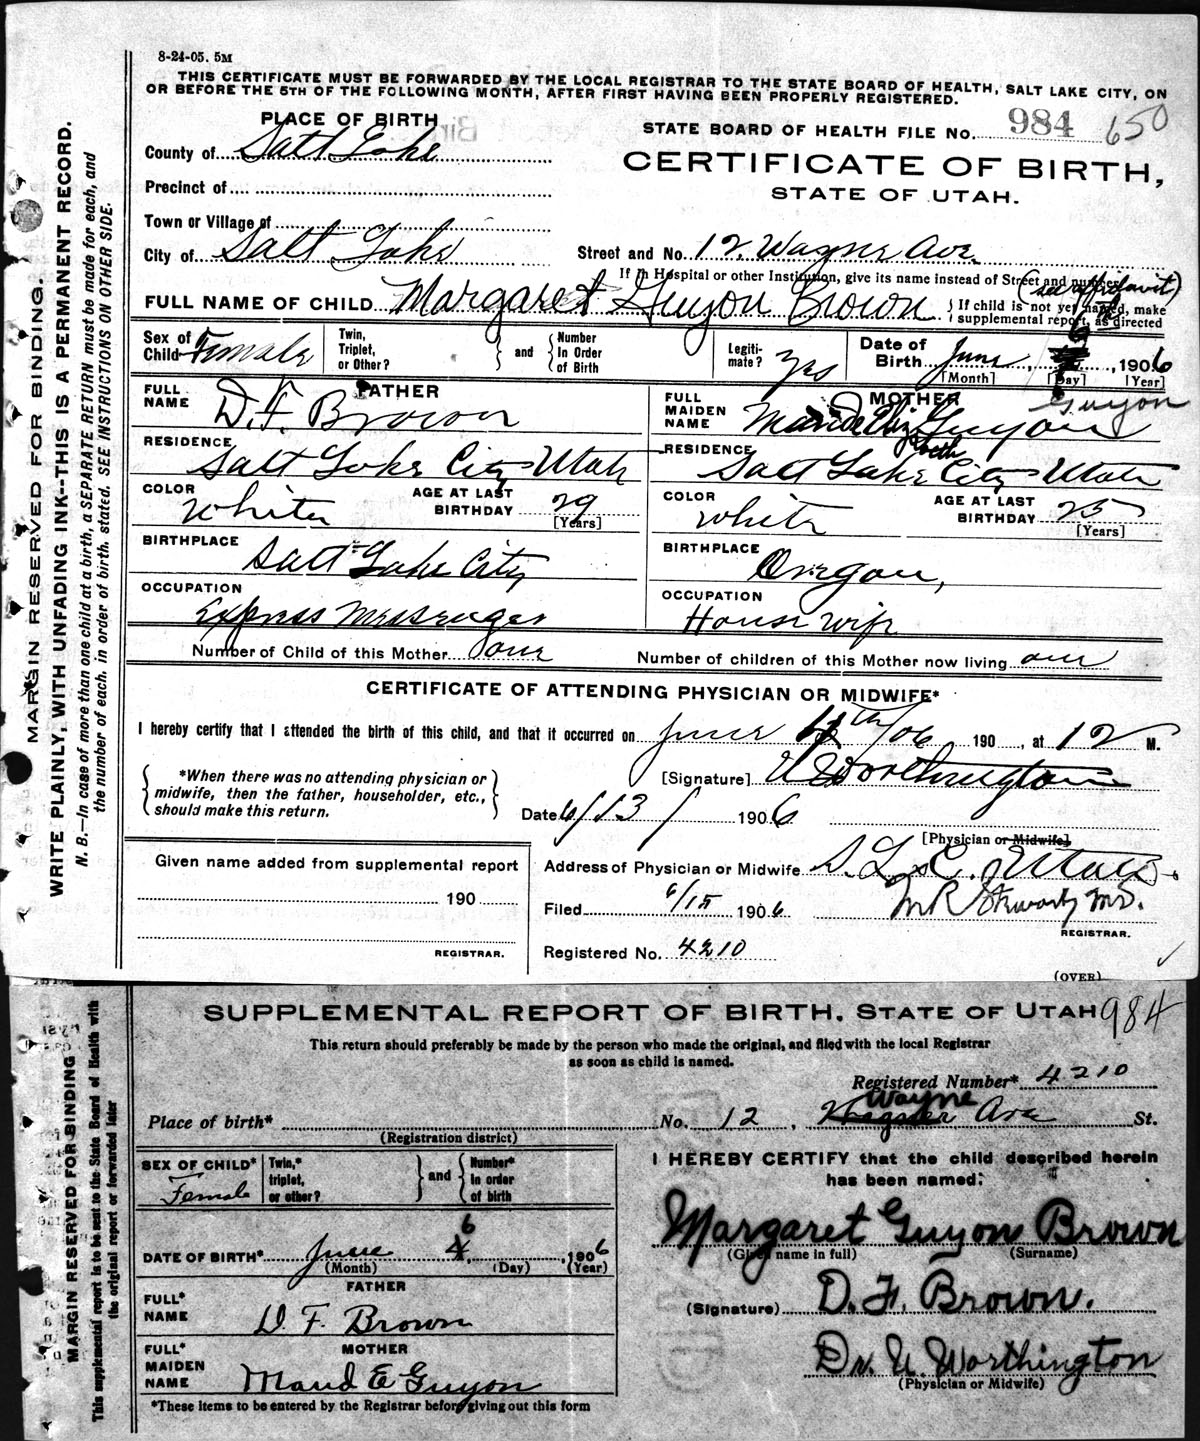 8-24-05. 5M
THIS CERTIFICATE MUST BE FORWARDED BY THE LOCAL REGISTRAR TO THE STATE BOARD OF HEALTH, SALT LAKE CITY, ON
OR BEFORE THE 5TH OF THE FOLLOWING MONTH, AFTER FIRST HAVING BEEN PROPERLY REGISTERED.
MARGIN RESERVED FOR BINDING.
WRITE PLAINLY, WITH UNFADING INK--THIS IS A PERMANENT RECORD.
N. B.—In case of more than one child at a birth, a SEPARATE RETURN must be made for each, and
the number of each, in order of birth, stated. SEE INSTRUCTIONS ON OTHER SIDE.
PLACE OF BIRTH
County of Salt Lake
Precinct of
Town or Village of
City of Salt Lake
STATE BOARD OF HEALTH FILE No. 984 650
CERTIFICATE OF BIRTH,
STATE OF UTAH.
Street and No. 12, Wayne Ave.
If in Hospital or other Institution, give its name instead of Street and number
(see affidavit)
FULL NAME OF CHILD Margaret Guyon Brown
If child is not yet named, make
supplemental report, as directed
Sex of Child Female
Twin, Triplet, or Other?
and
Number In Order of Birth
Legiti-mate? Yes
Date of Birth June 6 1906
[Month] [Day] [Year]
FATHER
FULL NAME D. F. Brown
RESIDENCE Salt Lake City Utah
COLOR White
AGE AT LAST BIRTHDAY 29
[Years]
BIRTHPLACE Salt Lake City
OCCUPATION Express Messenger
MOTHER
Guyon
FULL MAIDEN NAME Maud Elizabeth Guyon
RESIDENCE Salt Lake City Utah
COLOR White
AGE AT LAST BIRTHDAY 25
[Years]
BIRTHPLACE Oregon,
OCCUPATION House wife
Number of Child of this Mother one
Number of children of this Mother now living one
CERTIFICATE OF ATTENDING PHYSICIAN OR MIDWIFE*
I hereby certify that I attended the birth of this child, and that it occurred on June th /06 190 , at 12 M.
*When there was no attending physician or
midwife, then the father, householder, etc.,
should make this return.
[Signature] U Worthington
Date 6/13/ 1906
[Physician or Midwife]
Address of Physician or Midwife S. L. C. Utah
Given name added from supplemental report
190
REGISTRAR.
Filed 6/15 1906
M R Stewart, M.D.
REGISTRAR.
Registered No. 4210
(OVER)
SUPPLEMENTAL REPORT OF BIRTH. STATE OF UTAH 984
This return should preferably be made by the person who made the original, and filed with the local Registrar
as soon as child is named.
MARGIN RESERVED FOR BINDING
This supplemental report is to be sent to the State Board of Health with
the original report or forwarded later
Registered Number* 4210
Wayne
Place of birth* No. 12, Ave St.
(Registration district)
SEX OF CHILD* Female
Twin,* triplet, or other?
and
Number* In order of birth
I HEREBY CERTIFY that the child described herein
has been named:
Margaret Guyon Brown
(Given name in full) (Surname)
6
DATE OF BIRTH* June 4, 1906
(Month) (Day) (Year)
FATHER
FULL* NAME D. F. Brown
(Signature) D. F. Brown.
MOTHER
FULL* MAIDEN NAME Maud E Guyon
Dr. U. Worthington
(Physician or Midwife)
*These items to be entered by the Registrar before giving out this form